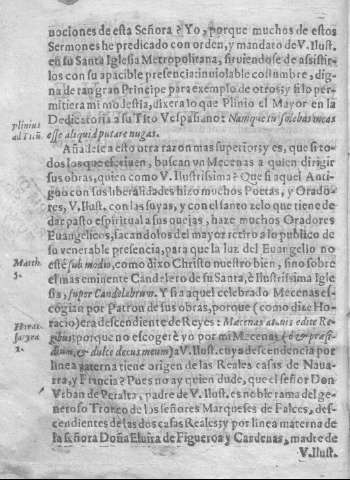 uociones de esta Señora? Yo, porque muchos de estos
Sermones he predicado con orden, y mandato de V. Ilust.
en su Santa Iglesia Metropolitana, siruiendose de assistir-
los con su apacible presencia: inuiolable costumbre, dig-
na de tan gran Principe para exemplo de otros; y si lo per-
mitiera mi modestia, dixera lo que Plinio el Mayor en la
Dedicatoria a su Tito Vespasiano: Namque tu solebas meas
plinius
ad Titũ.
esse aliquid putare nugas.
Añadese a esto otra razon mas superior; y es, que si to-
dos los que escriuen, buscan vn Mecenas a quien dirigir
sus obras, quien como V. Ilustrissima? Que si aquel Anti-
guo con sus liberalidades hizo muchos Poetas, y Orado-
res, V. Ilust. con las suyas, y con el santo zelo que tiene de
dar pasto espiritual a sus ouejas, haze muchos Oradores
Euangelicos, sacandolos del mayor retiro a lo publico de
su venerable presencia, para que la luz del Euangelio no
Matth.
5.
estè sub modio, como dixo Christo nuestro bien, sino sobre
el mas eminente Candelero de su Santa, è Ilustrissima Igle
sia, super Candelabrum. Y si a aquel celebrado Mecenas es-
cogian por Patron de sus obras, porque (como dize Ho-
Horat.
racio) era descendiente de Reyes: Mecenas atauis edite Re-
gibus: porque no escogerè yo por mi Mecenas (ò & præsi-
2.
dium, & dulce decus meum) a V. Ilust. cuya descendencia por
linea paterna tiene origen de las Reales casas de Nauar-
ra, y Francia? Pues no ay quien dude, que el señor Don
Vrban de Peralta, padre de V. Ilust. es noble rama del ge-
neroso Tronco de los señores Marqueses de Falces, des-
cendientes de las dos casas Reales; y por linea materna de
la señora Doña Eluira de Figueroa y Cardenas, madre de
V. Ilust.